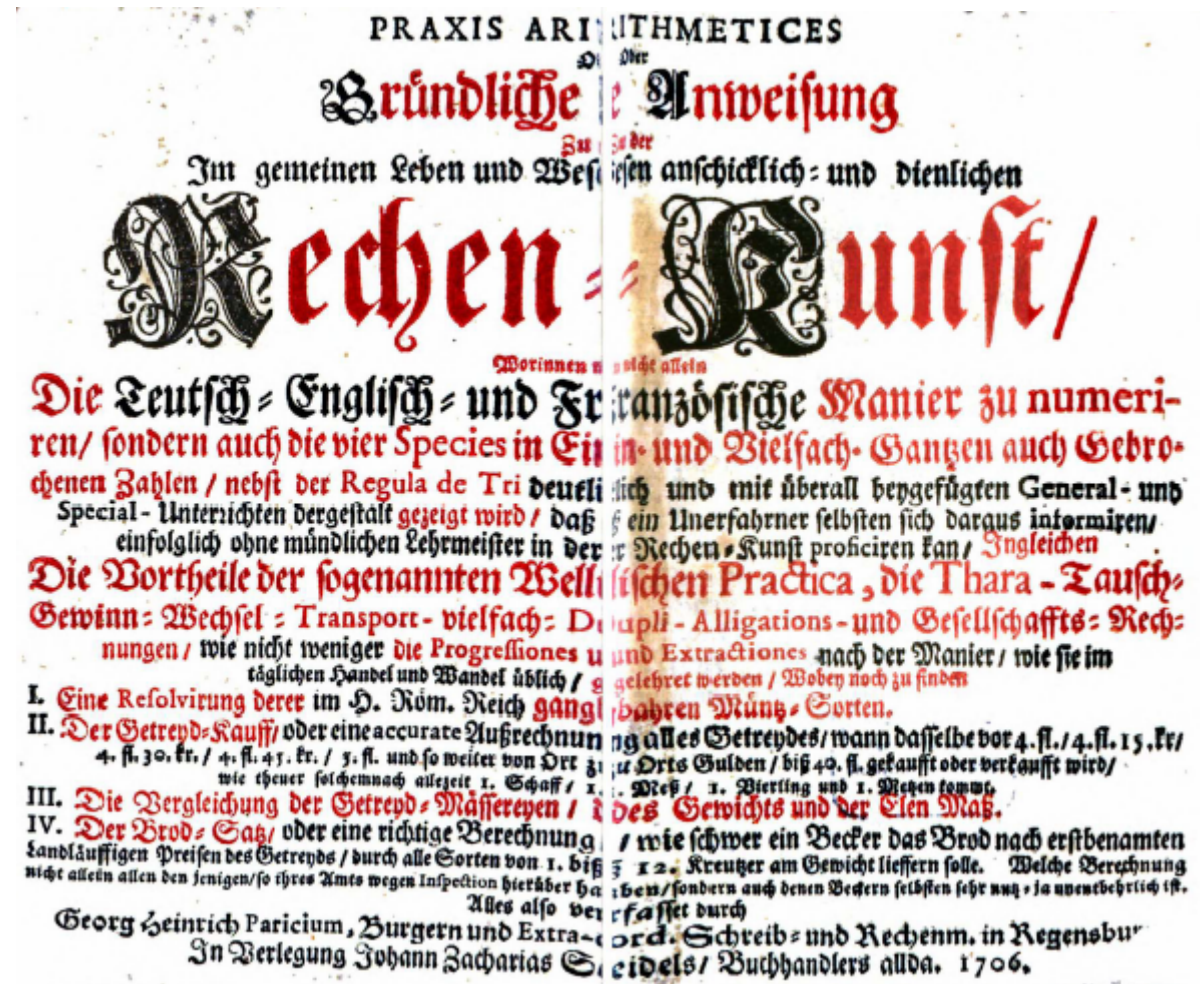 PRAXIS ARITHMETICES
Oder
Gründliche Anweisung
Zu der
Im gemeinen Leben und Wesen anschicklich- und dienlichen
Rechen-Kunst/
Worinnen nicht allein
Die Teutsch-Englisch-und Französische Manier zu numeri-
ren/ sondern auch die vier Species in Ein- und Vielfach-Gantzen auch Gebro-
chenen Zahlen / nebst der Regula de Tri deutlich und mit überall beygefügten General-und
Special-Unterrichten dergestalt gezeigt wird / daß ein Unerfahrner selbsten sich daraus informiren/
einfolglich ohne mündlichen Lehrmeister in der Rechen-Kunst proficiren kan/ Ingleichen
Die Vortheile der sogenannten Wellischen Practica, die Thara-Tausch-
Gewinn-Wechsel-Transport-vielfach-Dupli-Alligations-und Gesellschaffts-Rech-
nungen / wie nicht weniger die Progressiones und Extractiones nach der Manier / wie sie im
täglichen Handel und Wandel üblich / gelehret werden / Wobey noch zu finden
I. Eine Resolvirung derer im H. Röm. Reich gangbahren Müntz-Sorten.
II. Der Getreyd-Kauff/ oder eine accurate Außrechnung alles Getreydes/ wann dasselbe vor 4. fl./ 4. fl. 15. kr/
4. fl. 30. kr. / 4. fl. 45. kr. / 5. fl. und so weiter von Ort zu Orts Gulden / biß 40. fl. gekaufft oder verkaufft wird/
wie theuer solchemnach allezeit 1. Schaff / 1. Meß / 1. Vierling und 1. Metzen kommt.
III. Die Vergleichung der Getreyd-Mässereyen / des Gewichts und der Elen Maß.
IV. Der Brod-Satz/ oder eine richtige Berechnung / wie schwer ein Becker das Brod nach erstbenamten
Landläuffigen Preisen des Getreyds / durch alle Sorten von 1. biß 12. Kreutzer am Gewicht lieffern solle. Welche Berechnung
nicht allein allen den jenigen/ so ihres Amts wegen Inspection hierüber haben/ sondern auch denen Beckern selbsten sehr nutz-ja unentbehrlich ist.
Alles also verfasset durch
Georg Heinrich Paricium, Burgern und Extra-ord. Schreib-und Rechenm. in Regensbur
In Verlegung Johann Zacharias Seidels/ Buchhandlers allda. 1706.